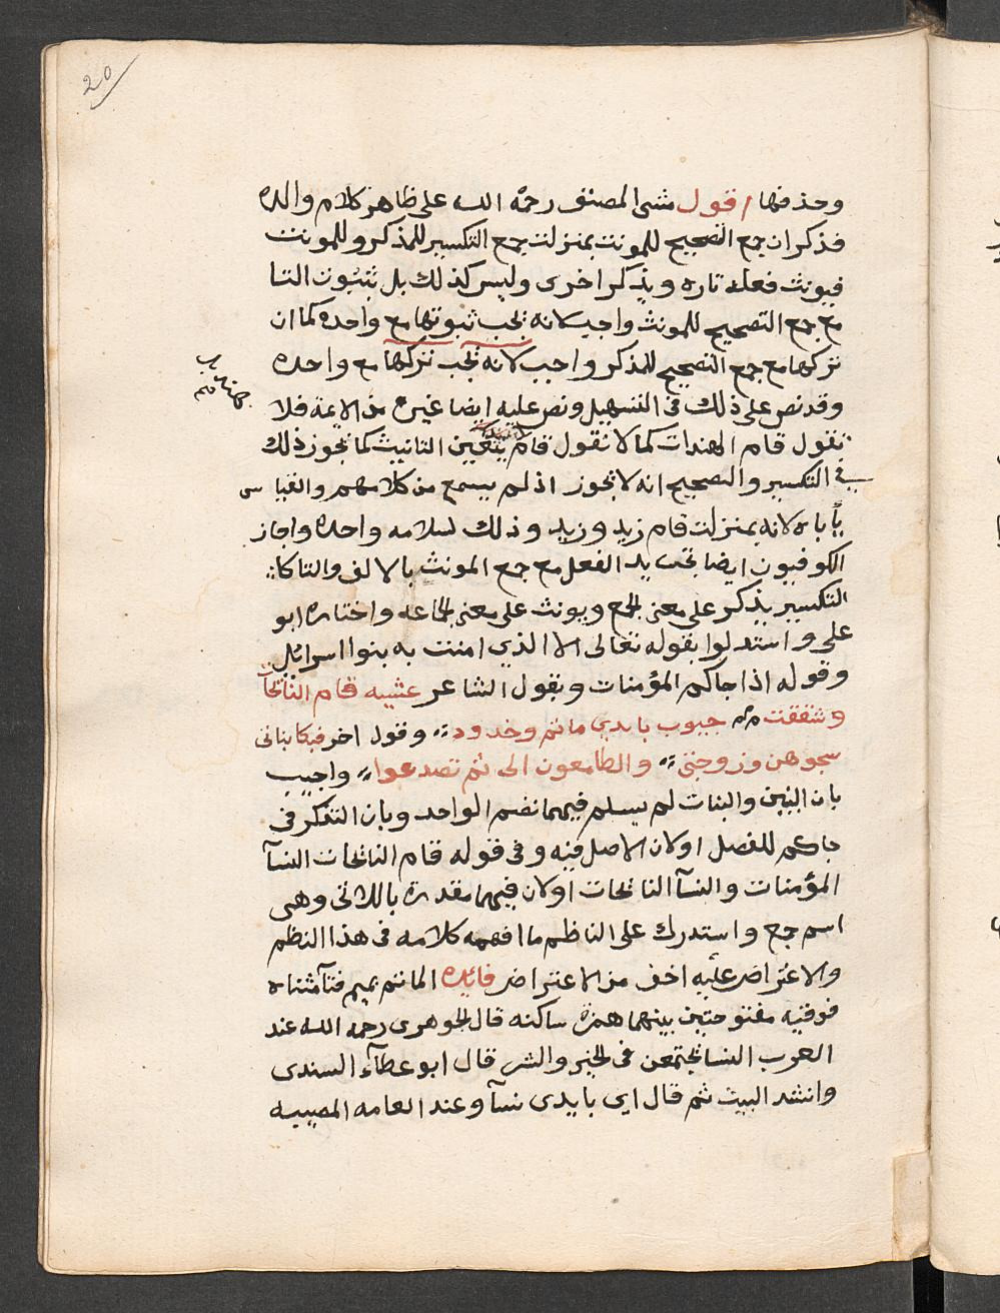 20
وحذفها اقول مشى المصنف رحمه الله على ظاهر كلام والده
فذكر ان جمع التصحيح للمونث بمنزلت جمع التكسير للمذكر وللمونث
فيونث فعله تاره ويذكر اخرى وليس كذلك بل ثبوت التا
مع جمع التصحيح للمونث واجب لانه يجب ثبوتها مع واحده كما ان
تركها مع جمع التصحيح للمذكر واجب لانه يجب تركها مع واحده
وقد نص على ذلك فى التسهيل ونص عليه ايضا غيره من الايمة فلا
تقول قام الهندات كما لا تقول قام يتعين التانيث كما تجوز ذلك
فى التكسير والصحيح انه لا يجوز اذ لم يسمع من كلامهم والقياس
ياباه لانه بمنزلت قام زيد وزيد وذلك لسلامه واحده واجاز
الكوفيون ايضا تجريد الفعل مع جمع المونث بالالف والتا كان
التكسير يذكر على معنى الجمع ويونث على معنى الجماعه واختاره ابو
على واستدلوا بقوله تعالى الا الذي امنت به بنوا اسرائل
وقوله اذا جاكم المؤمنات وبقول الشاعر عشيه قام النائحات
وشققت جيوب بايدي ماتم وخدود وقول اخر فبكا بناتى
شجوهن وزوجتى والطامعون الى ثم تصدعوا واجيب
بان البنين والبنات لم يسلم فيهما نضم الواحد وبان التذكر فى
جاكم للفصل او لان الاصل فيه وفى قوله قام النائحات النسآ
المؤمنات والنسآ النائحات او لان فيهما مقدره باللاتى وهى
اسم جمع واستدرك على الناظم ما افهمه كلامه فى هذا النظم
والاعتراض عليه اخف من الاعتراض فائده الماتم بميم فتآ مثناه
فوقيه مفتوحتين بينهما همزه ساكنه قال الجوهرى رحمه الله عند
العرب النسا يجتمعن فى الخير والشر قال ابو عطآء السندى
وانشد البيت ثم قال اي بايدى نسآ وعند العامه المصيبه